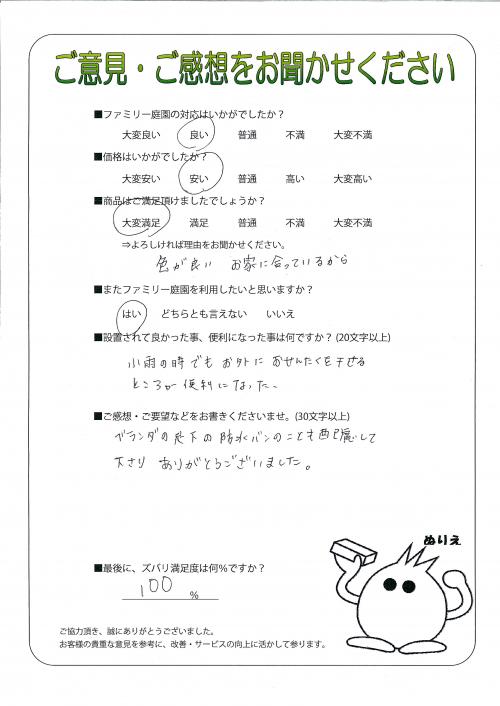 ご意見・ご感想をお聞かせください
■ファミリー庭園の対応はいかがでしたか？
大変良い 良い 普通 不満 大変不満
■価格はいかがでしたか？
大変安い 安い 普通 高い 大変高い
■商品はご満足頂けましたでしょうか？
大変満足 満足 普通 不満 大変不満
⇒よろしければ理由をお聞かせください。
色が良い お家に合っているから
■またファミリー庭園を利用したいと思いますか？
はい どちらとも言えない いいえ
■設置されて良かった事、便利になった事は何ですか？(20文字以上)
小雨の時でもお外におせんたくを干せる
ところが便利になった。
■ご感想・ご要望などをお書きくださいませ。(30文字以上)
ベランダの床下の防水パンのことも配慮して
下さり ありがとうございました。
ぬりえ
■最後に、ズバリ満足度は何％ですか？
100 ％
ご協力頂き、誠にありがとうございました。
お客様の貴重な意見を参考に、改善・サービスの向上に活かして参ります。